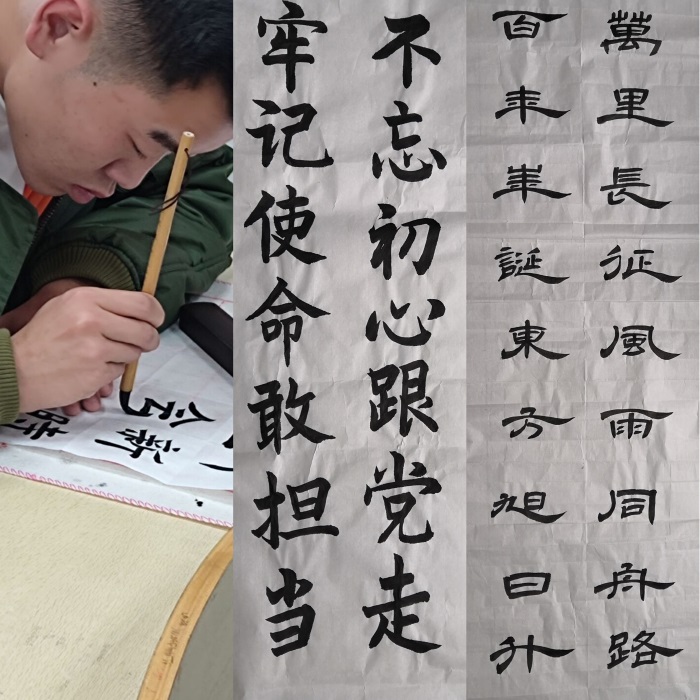 新
不忘初心跟党走
牢记使命敢担当
萬里長征風雨同舟路
百年華誕東方旭日升